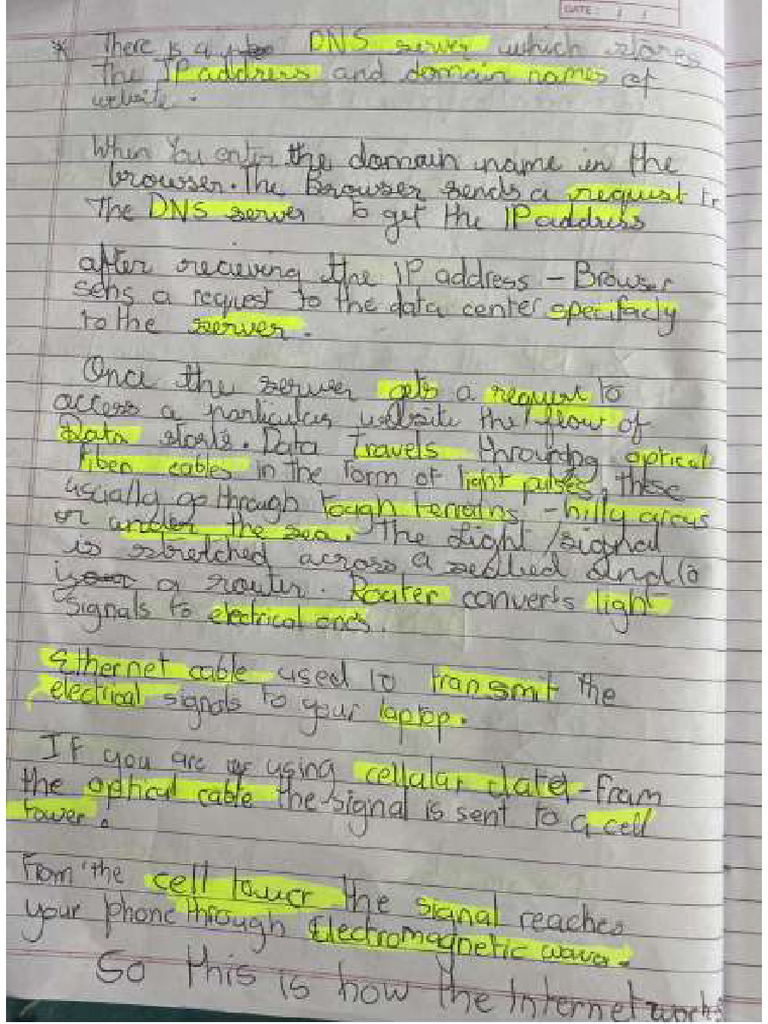 DATE: / /
* There is a DNS server which stores
the IP address and domain names of
website.
When You enter the domain name in the
browser. The Browser sends a request to
The DNS server to get the IP address
after recieving the IP address - Browser
sens a request to the data center specifacly
to the server.
Once the server gets a request to
access a particular website the flow of
Data starts. Data Travels throung optical
fiber cables in the form of light pulses, these
usually go through tough terrains - hilly areas
or under the sea. The Light / signal
is stretched across a and to
a router. Router converts light
signals to electrical ones.
Ethernet cable used to transmit the
electrical signals to your laptop.
If you are using cellular data - From
the optical cable the signal is sent to a cell
tower.
From the cell tower the signal reaches
your phone through Electromagnetic wava.
So this is how the Internet works